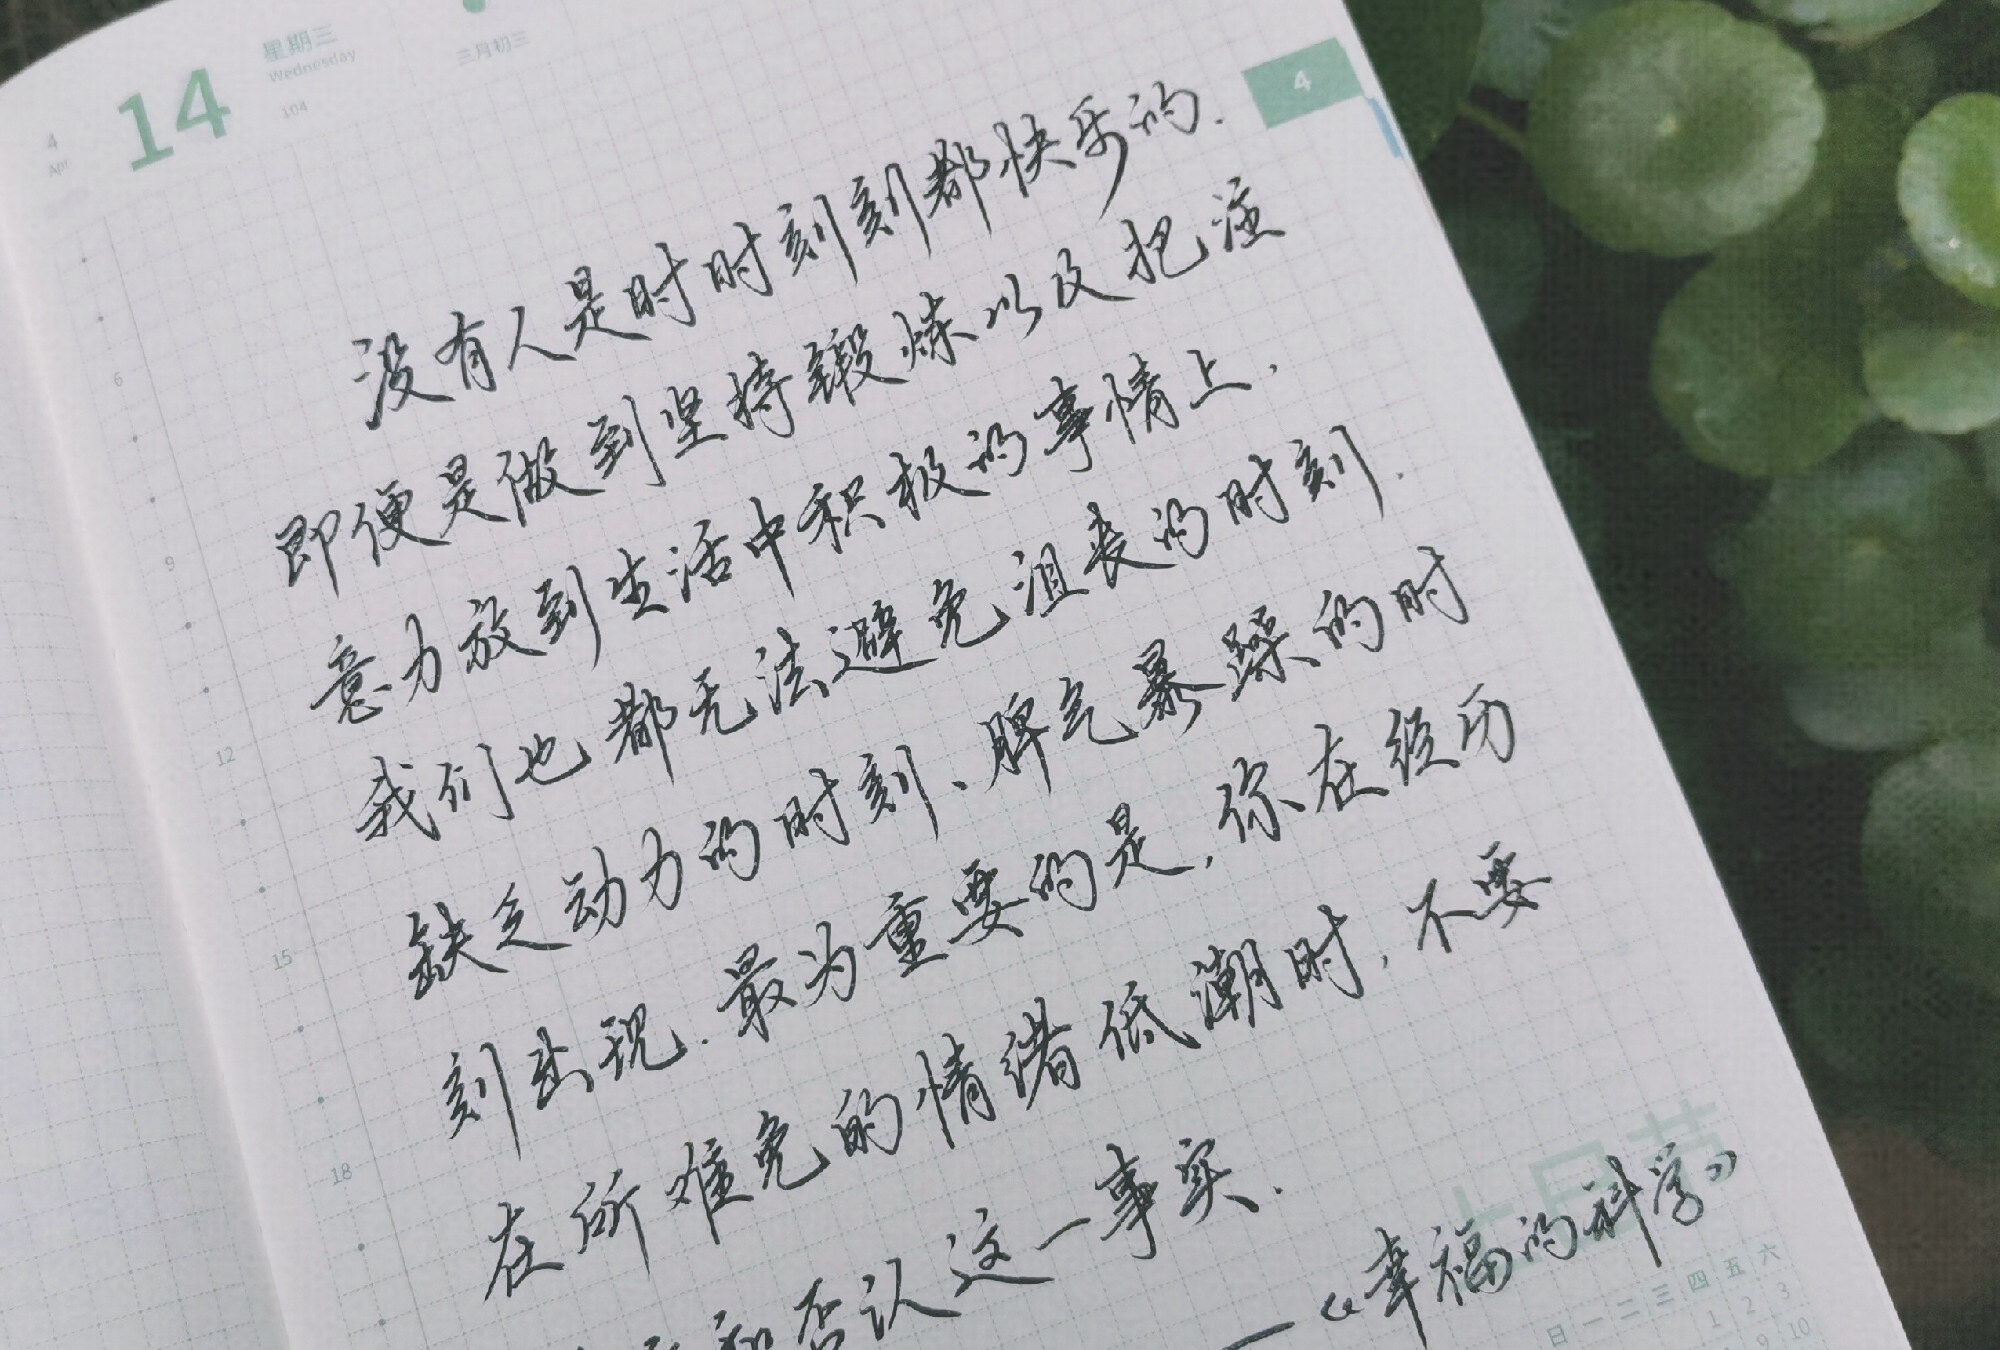 14
星期三
Wednesday
104
三月初三
4
Apr
4
没有人是时时刻刻都快乐的.
即便是做到坚持锻炼以及把注
意力放到生活中积极的事情上.
我们也都无法避免沮丧的时刻.
缺乏动力的时刻、脾气暴躁的时
刻出现.最为重要的是,你在经历
在所难免的情绪低潮时,不要
否认这一事实.
——《幸福的科学》
6
9
12
15
18
日 一 二 三 四 五 六
1 2 3
9 10